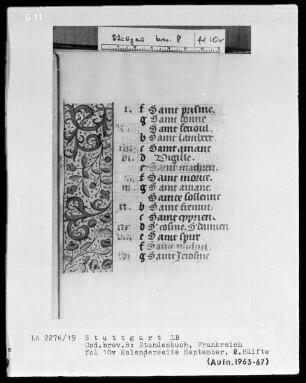 G 11
Stuttgart brev. 8 fol 10v
f Saint
g Saint
Saint
b Saint lambert
c Saint amant
vi. d Vigille.
e Saint mathieu
f Saint morice
g Saint
Sainte sollenne
b Saint firmin
c Saint cyprien
d S cosme. S damien
e Saint
f Saint michiel
g Saint Jerosme
LA 2276/19 Stuttgart LB
Cod.brev.8: Stundenbuch, Frankreich
fol 10v Kalenderseite September, 2.Hälfte
(Aufn.1963-67)